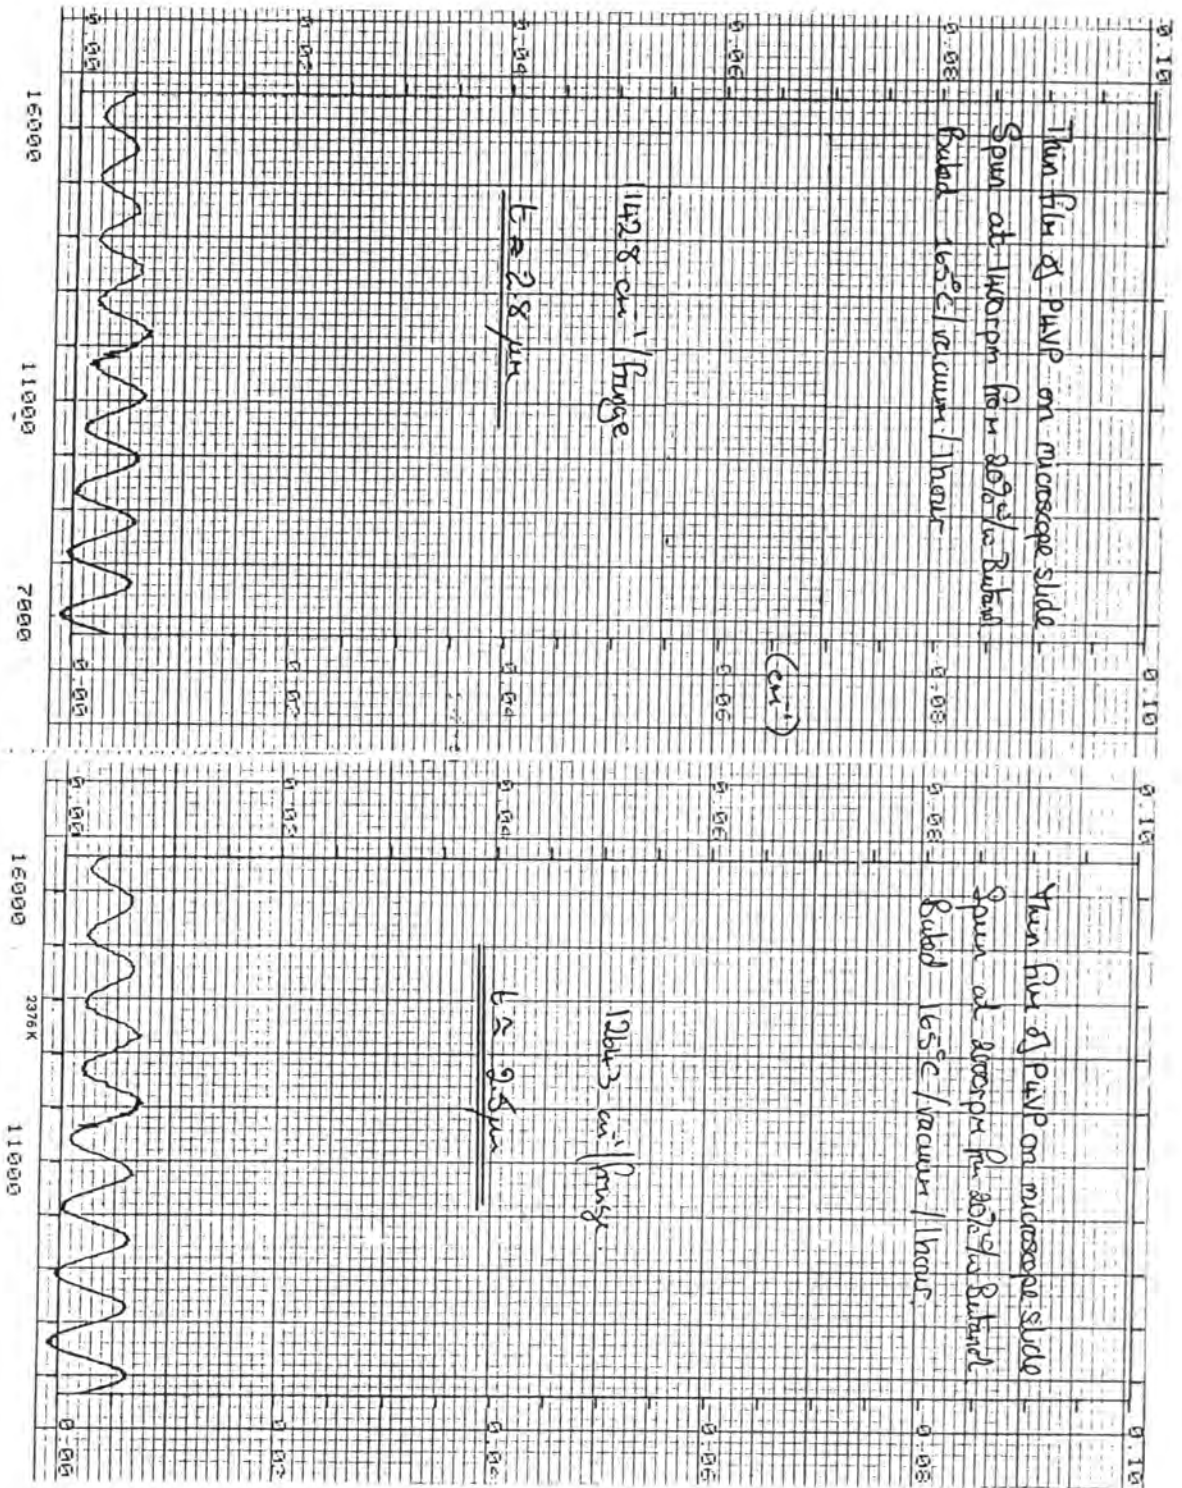 0.00 0.02 0.04 0.06 0.08 0.10
Thin film of P4VP on microscope slide.
Spun at 1400rpm from 20% w/w Butanol
Baked 165°C/vacuum/1hour
1142.8 cm⁻¹/fringe
t ≈ 2.8 µm
16000 11000 7000
(cm⁻¹)
0.00 0.02 0.04 0.06 0.08 0.10
0.00 0.02 0.04 0.06 0.08 0.10
Thin film of P4VP on microscope slide
Spun at 2000rpm from 20% w/w Butanol
Baked 165°C/vacuum/1hour.
1264.3 cm⁻¹/fringe
t ≈ 2.5 µm
16000 11000
2376K
0.00 0.02 0.04 0.06 0.08 0.10